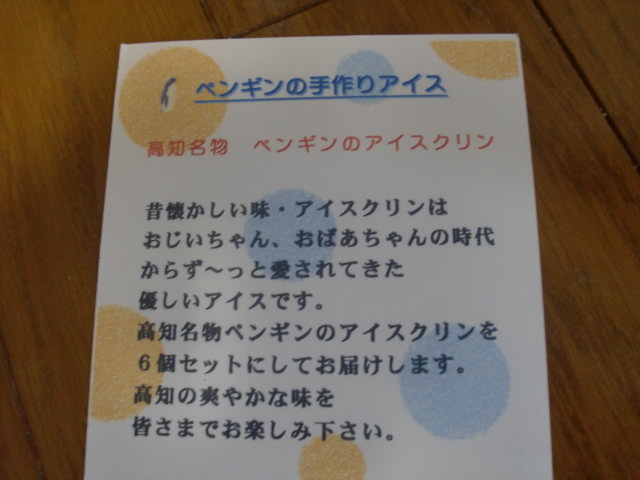 ペンギンの手作りアイス
高知名物 ペンギンのアイスクリン
昔懐かしい味・アイスクリンは
おじいちゃん、おばあちゃんの時代
からず～っと愛されてきた
優しいアイスです。
高知名物ペンギンのアイスクリンを
６個セットにしてお届けします。
高知の爽やかな味を
皆さまでお楽しみ下さい。